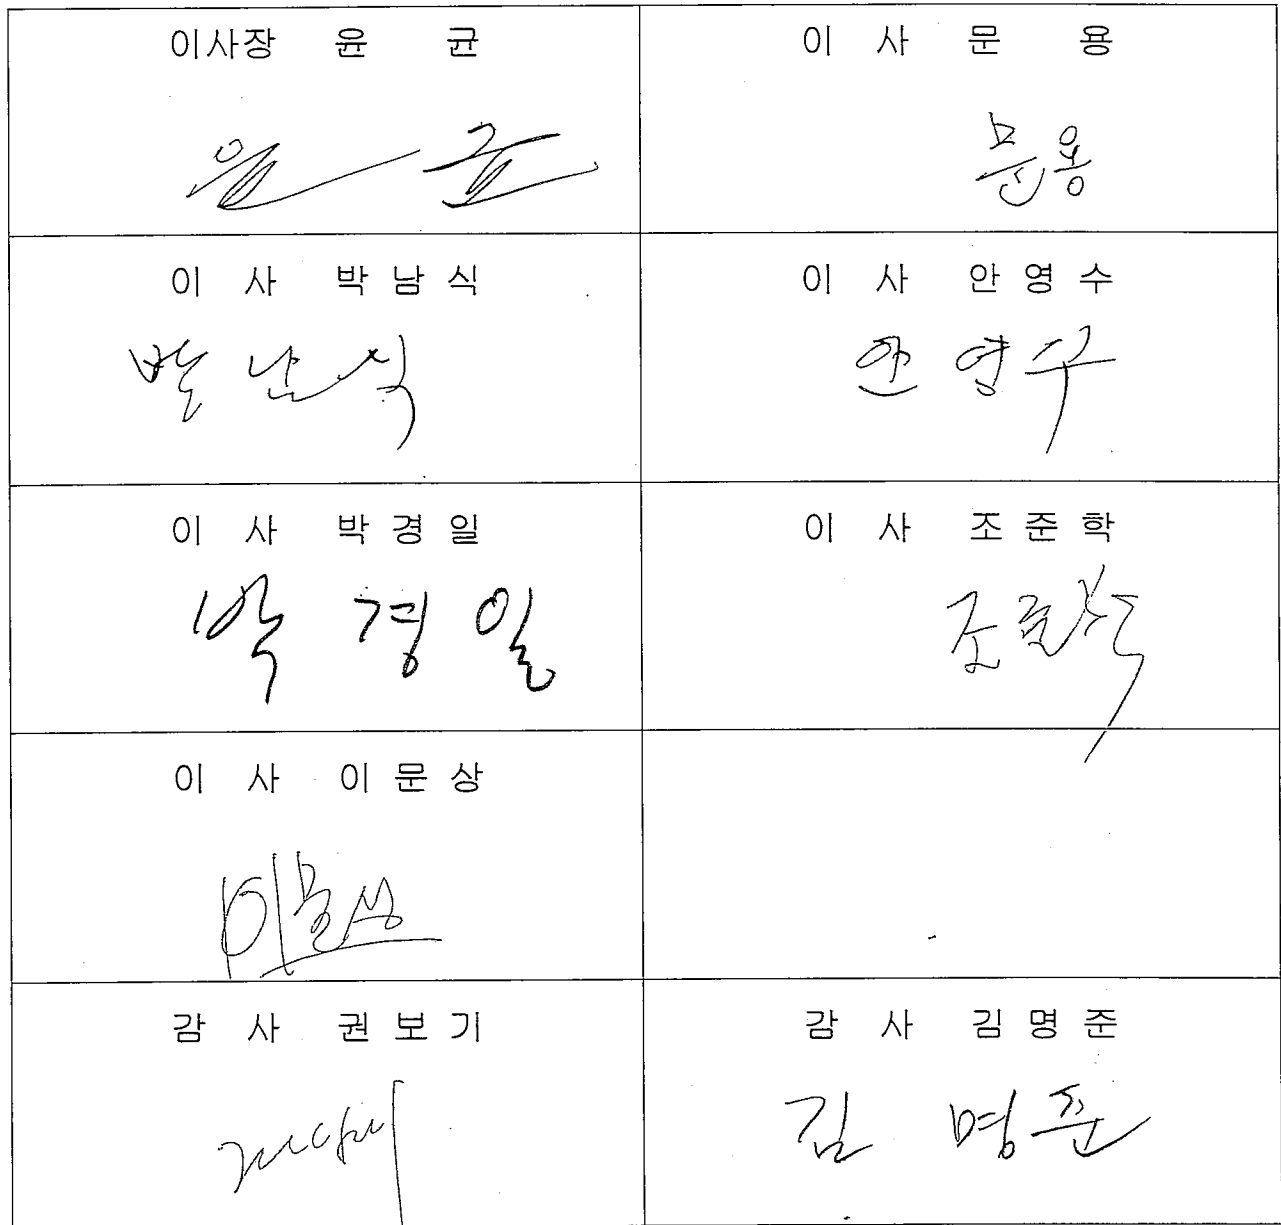 이사장 윤 균
윤 균
이 사 문 용
문용
이 사 박남식
박남식
이 사 안영수
안영수
이 사 박경일
박경일
이 사 조준학
조준학
이 사 이문상
이문상
감 사 권보기
감 사 김명준
김명준